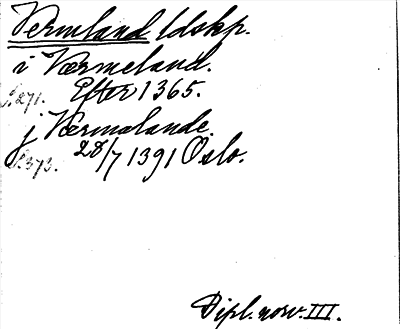 Vermland ldskp.
i Værmeland.
S. 271. Efter 1365.
j Værmalande.
S. 373. 28/7 1391 Oslo.
Dipl. norv. III.